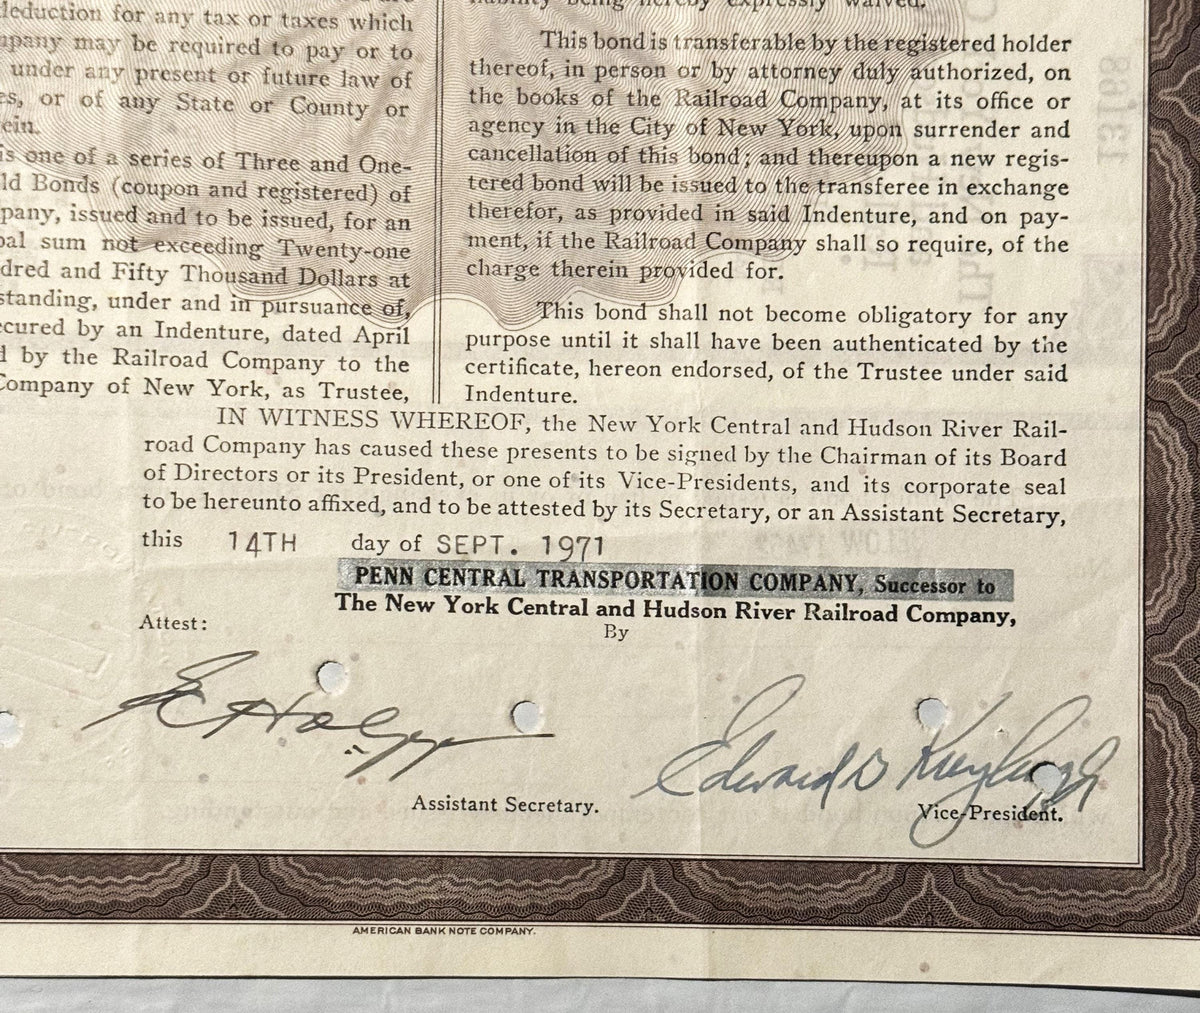 deduction for any tax or taxes which
mpany may be required to pay or to
under any present or future law of
es, or of any State or County or
ein.
is one of a series of Three and One-
ld Bonds (coupon and registered) of
pany, issued and to be issued, for an
pal sum not exceeding Twenty-one
dred and Fifty Thousand Dollars at
standing, under and in pursuance of,
ecured by an Indenture, dated April
d by the Railroad Company to the
Company of New York, as Trustee,
liability being hereby expressly waived.
This bond is transferable by the registered holder
thereof, in person or by attorney duly authorized, on
the books of the Railroad Company, at its office or
agency in the City of New York, upon surrender and
cancellation of this bond; and thereupon a new regis-
tered bond will be issued to the transferee in exchange
therefor, as provided in said Indenture, and on pay-
ment, if the Railroad Company shall so require, of the
charge therein provided for.
This bond shall not become obligatory for any
purpose until it shall have been authenticated by the
certificate, hereon endorsed, of the Trustee under said
Indenture.
IN WITNESS WHEREOF, the New York Central and Hudson River Rail-
road Company has caused these presents to be signed by the Chairman of its Board
of Directors or its President, or one of its Vice-Presidents, and its corporate seal
to be hereunto affixed, and to be attested by its Secretary, or an Assistant Secretary,
this 14TH day of SEPT. 1971
PENN CENTRAL TRANSPORTATION COMPANY, Successor to
The New York Central and Hudson River Railroad Company,
Attest:
By
Edward D
Assistant Secretary.
Vice-President.
AMERICAN BANK NOTE COMPANY.
13168